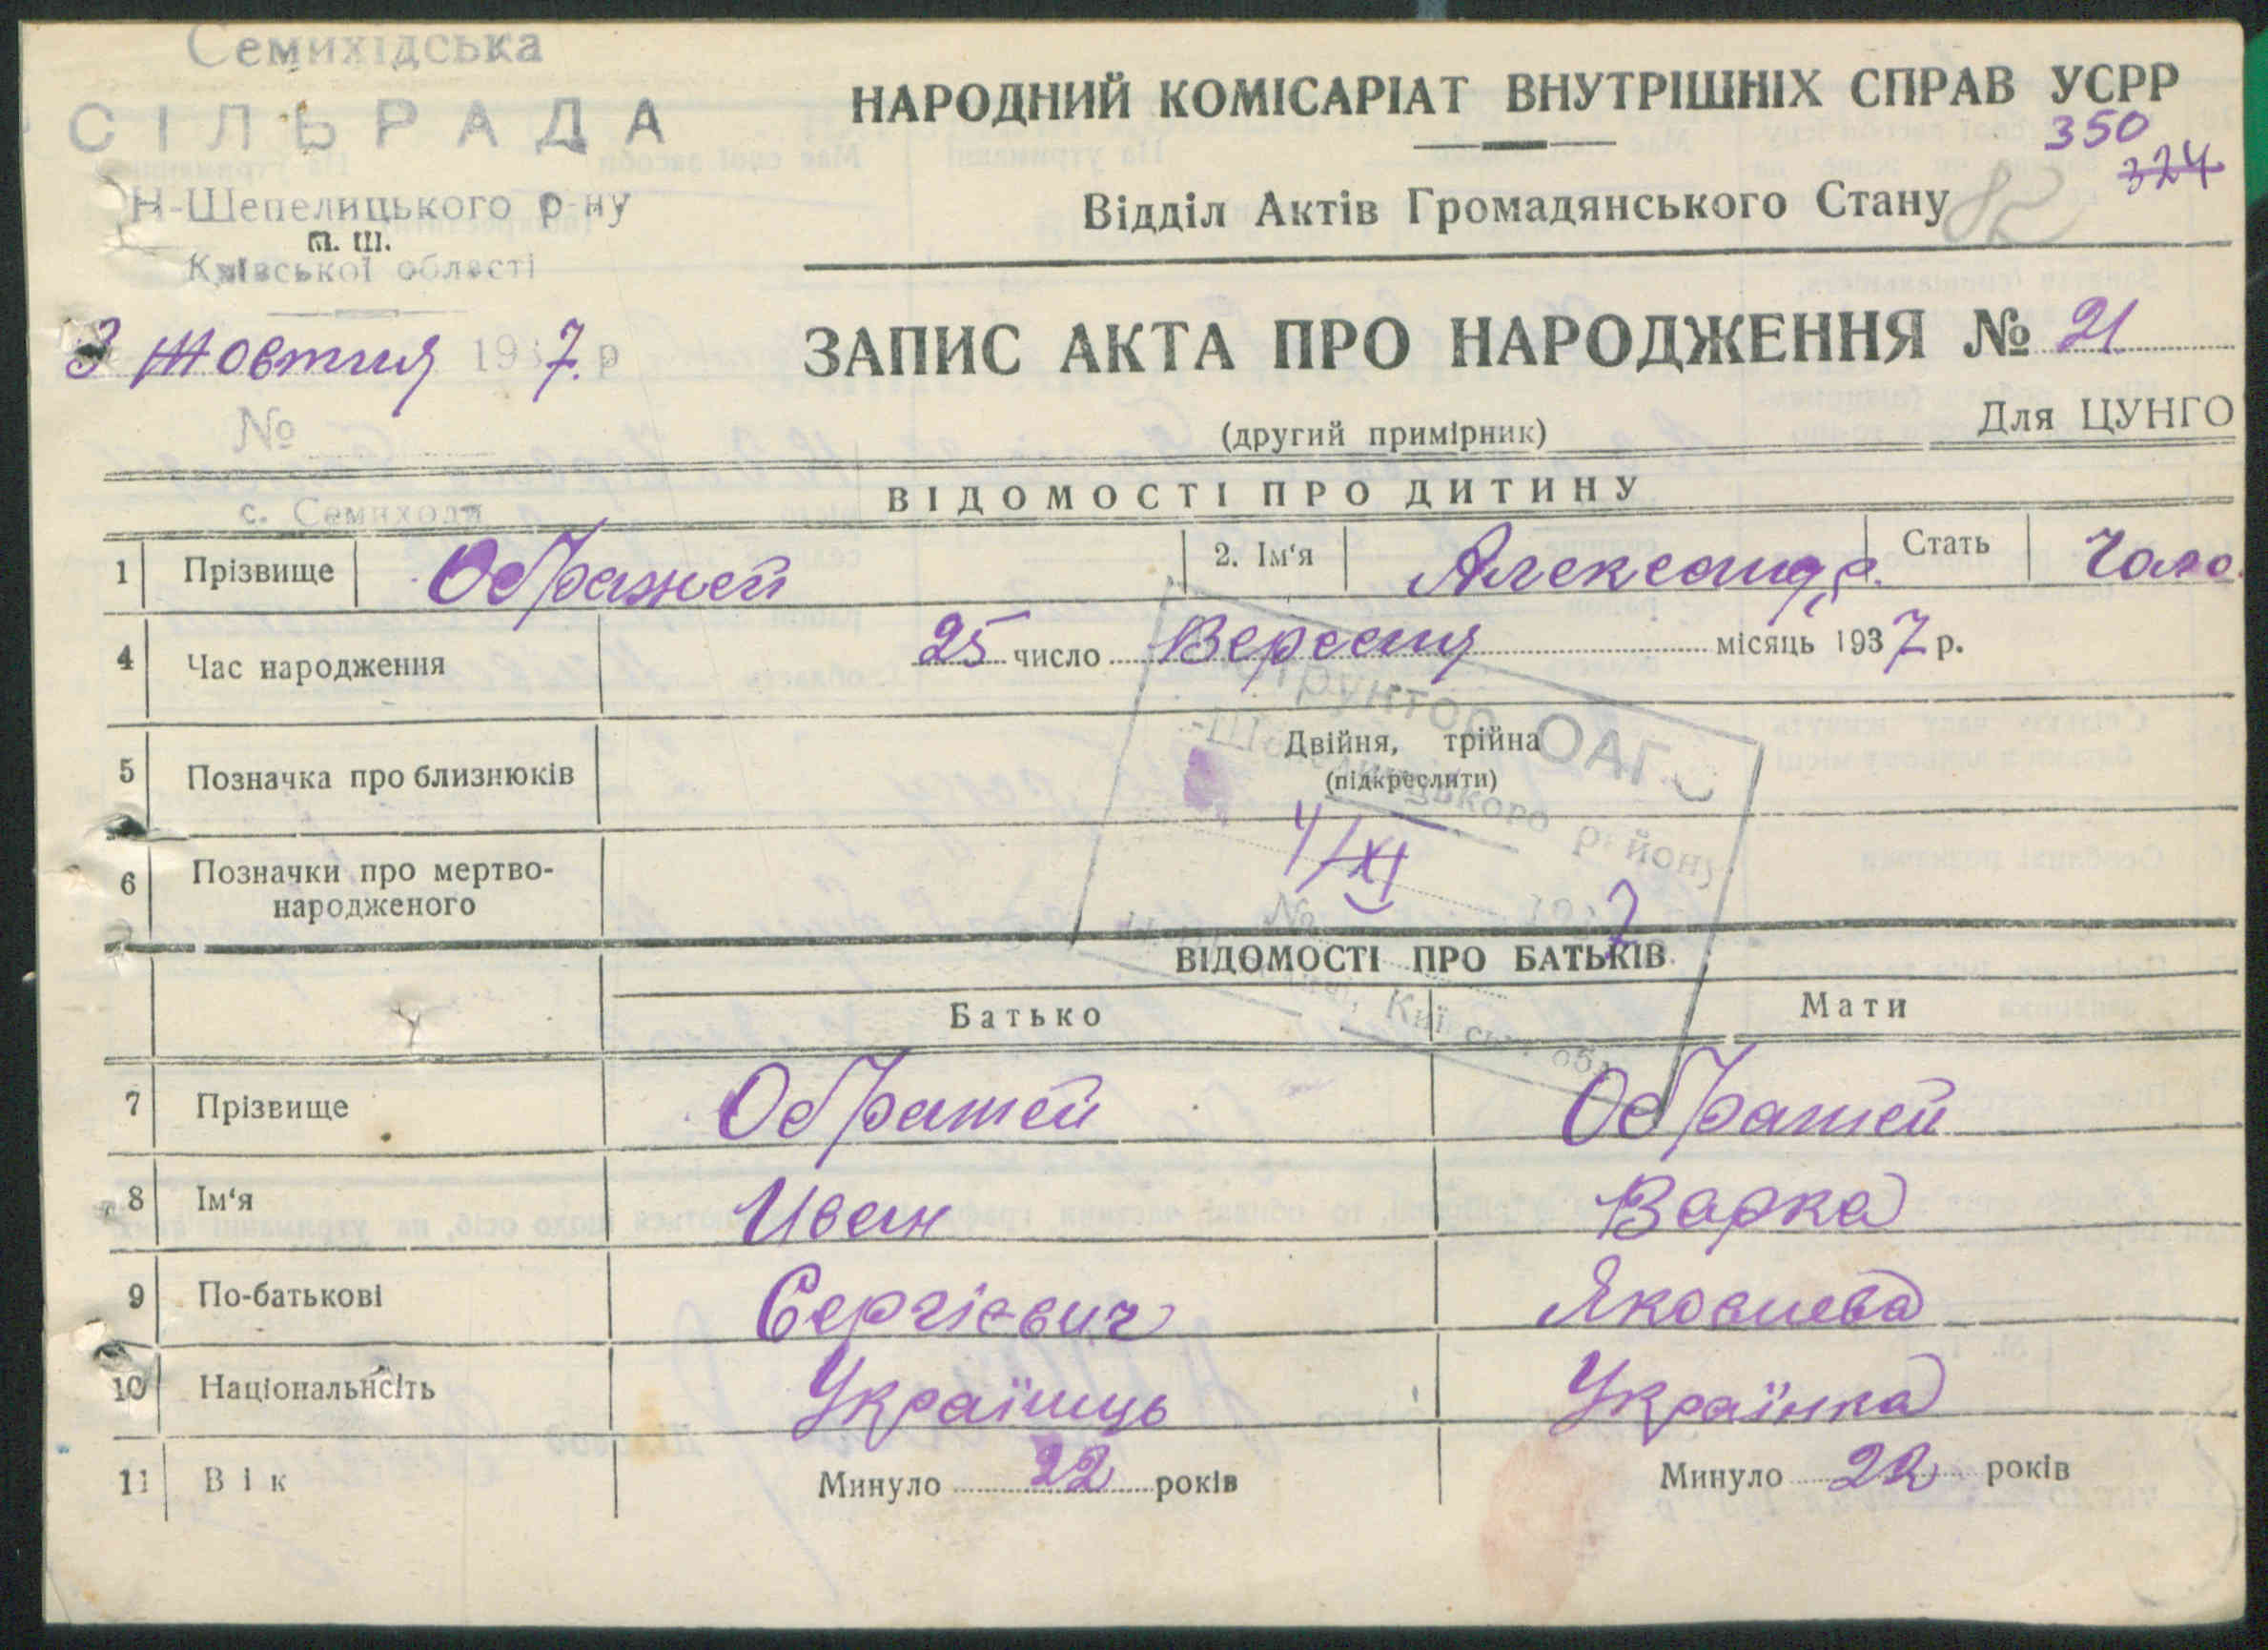 Семихідська
СІЛЬРАДА
Н-Шепелицького р-ну
п. ш.
Київської області
3 Жовтня 1937. р
№
с. Семиходи
НАРОДНИЙ КОМІСАРІАТ ВНУТРІШНІХ СПРАВ УСРР
350
324
Відділ Актів Громадянського Стану 82
ЗАПИС АКТА ПРО НАРОДЖЕННЯ № 21
(другий примірник)
Для ЦУНГО
ВІДОМОСТІ ПРО ДИТИНУ
1 Прізвище Ображей 2. Ім'я Александр. Стать Чоло.
4 Час народження 25 число Вересня місяць 1937 р.
5 Позначка про близнюків Двійня, трійна
(підкреслити)
6 Позначки про мертво-
народженого
ОАГС
району
4/XI
№ 1937
Київськ обл
ВІДОМОСТІ ПРО БАТЬКІВ
Батько Мати
7 Прізвище Ображей Ображей
8 Ім'я Иван Варка
9 По-батькові Сергієвич Яковлева
10 Національнсіть Українць Українка
11 Вік Минуло 22 років Минуло 22 років